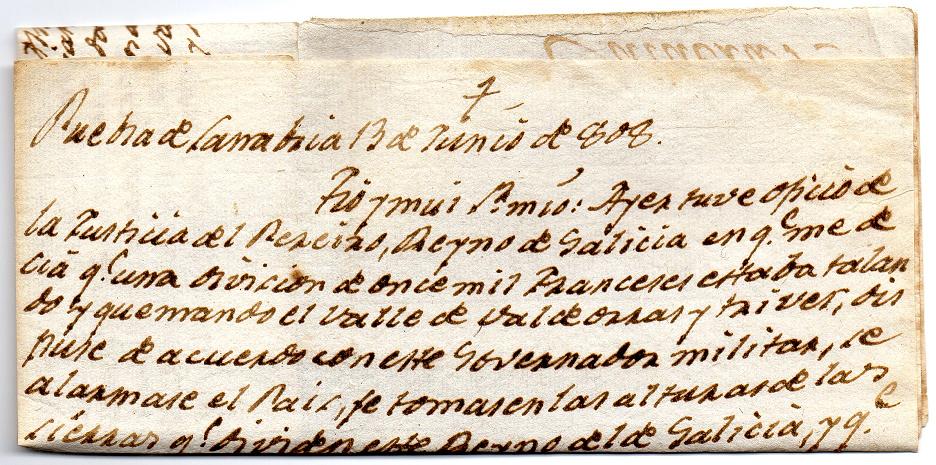 Puebla de Sanabria 13 de Junio de 808.
Tio y mui Sr. mio: Ayer tuve oficio de
la Justicia del Pereiro, Reyno de Galicia en q.e me de
cia q.e una Division de once mil Franceses estaba talan
do y quemando el Valle de Valdeorras y trives, dis
puse de acuerdo con este Governador militar, se
alarmase el Pais, se tomasen las alturas de las
sierras q.e dividen este Reyno del de Galicia, y q.e